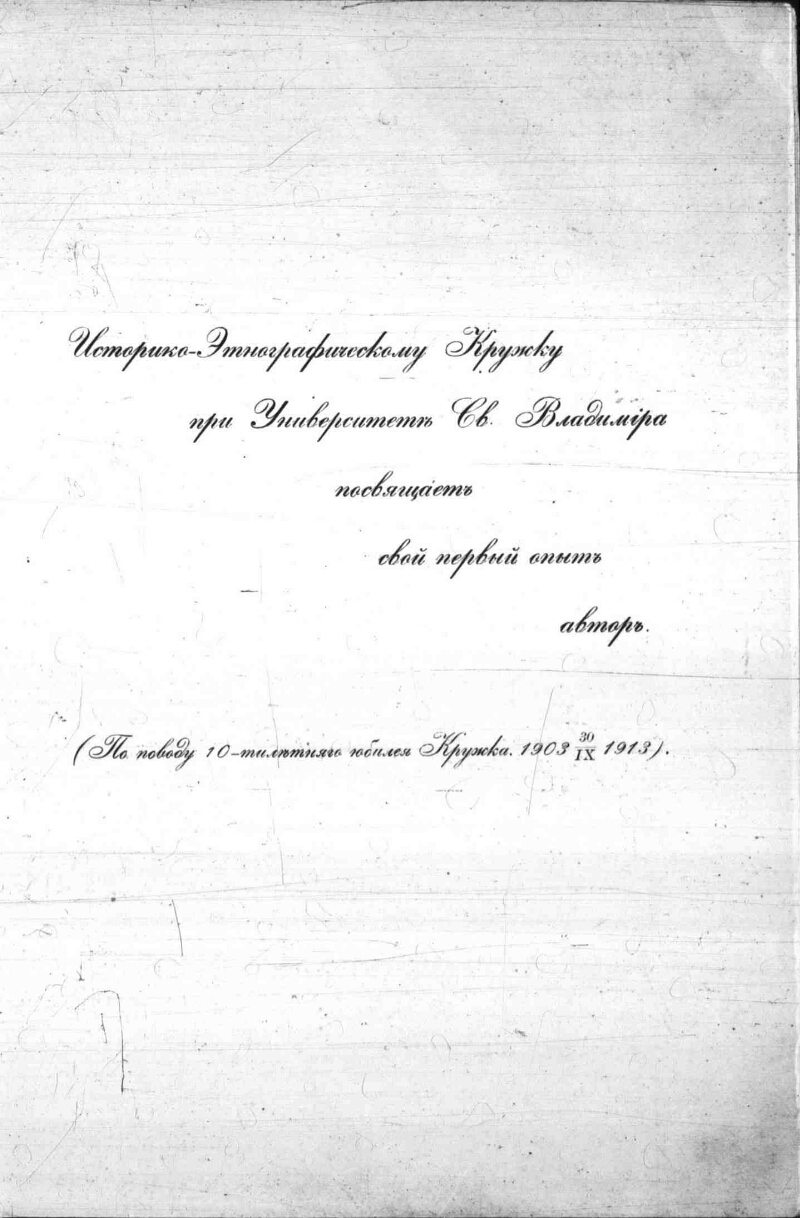 Историко-Этнографическому Кружку
при Университетѣ Св. Владиміра
посвящаетъ
свой первый опытъ
авторъ.
(По поводу 10-тилѣтняго юбилея Кружка. 1903 30/IX 1913).